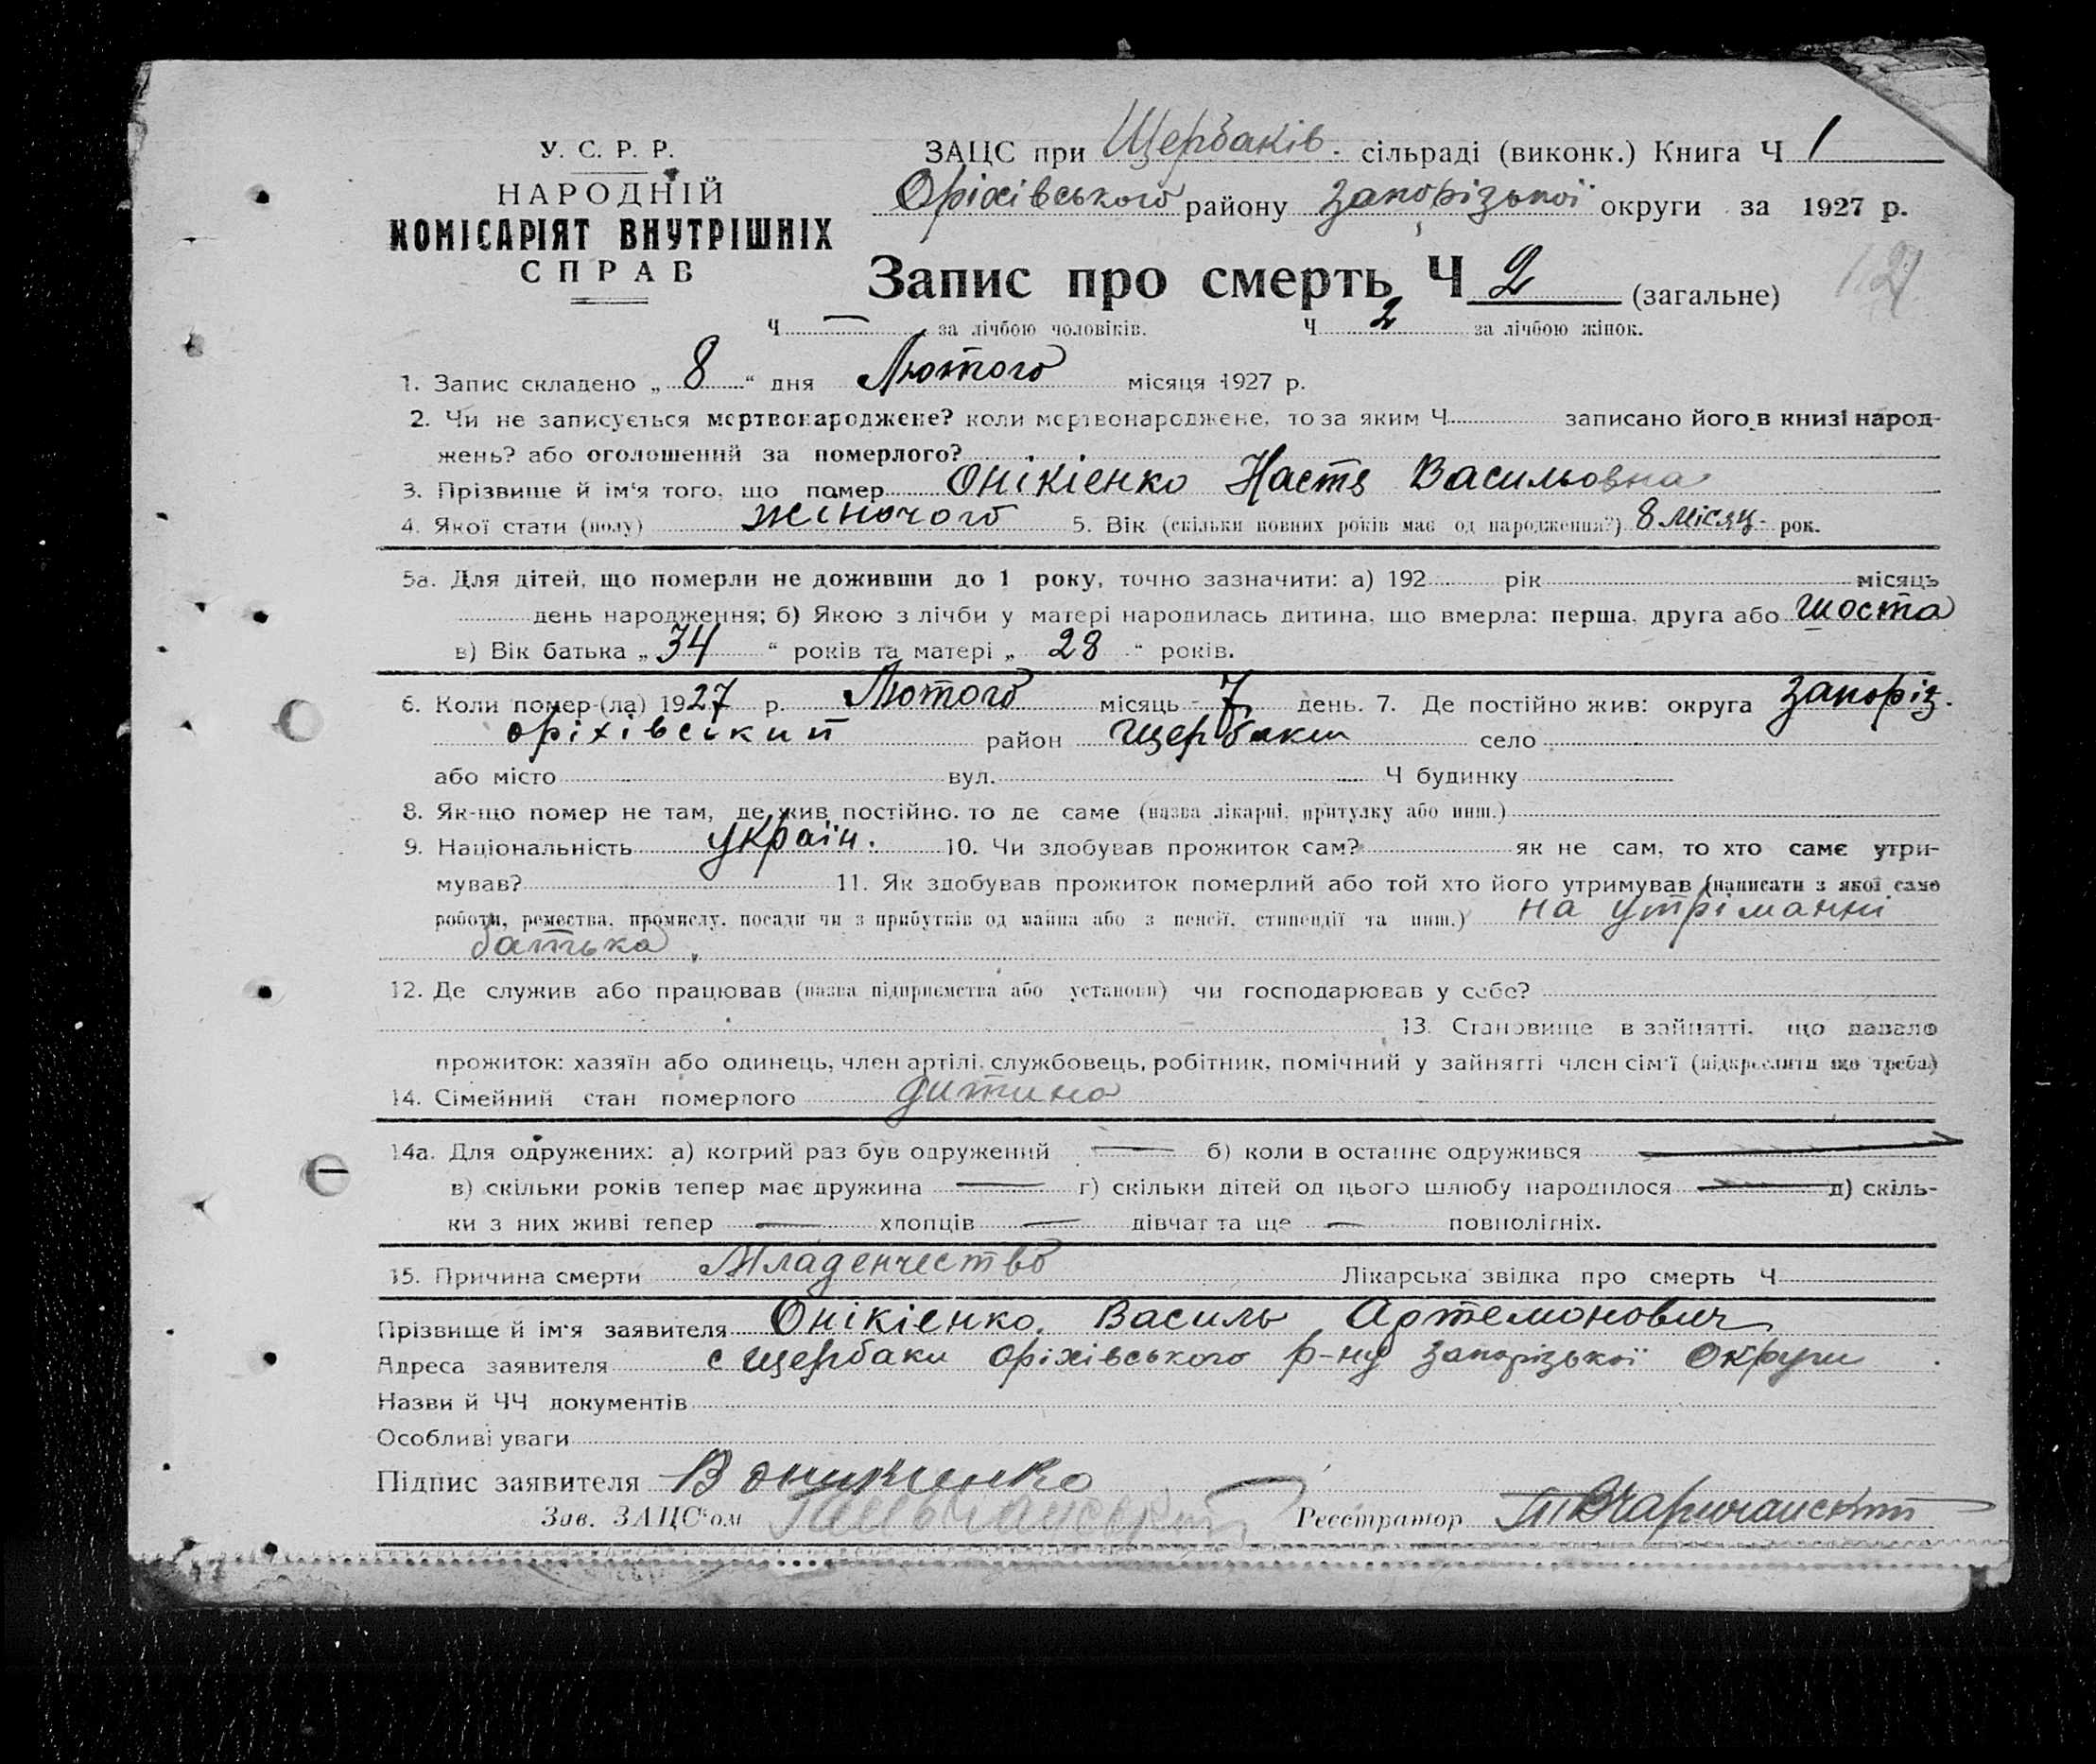 У. С. Р. Р.
НАРОДНІЙ
КОМІСАРІЯТ ВНУТРІШНІХ
СПРАВ
ЗАЦС при Щербаків- сільраді (виконк.) Книга Ч 1
Оріхівського району Запорізької округи за 1927 р.
Запис про смерть Ч 2 (загальне)
Ч — за лічбою чоловіків. Ч 2 за лічбою жінок.
1. Запис складено „8“ дня Лютого місяця 1927 р.
2. Чи не записується мертвонароджене? коли мертвонароджене, то за яким Ч записано його в книзі народ-
жень? або оголошений за померлого?
3. Прізвище й ім'я того, що помер Онікіенко Настя Васильовна
4. Якої стати (полу) жіночого 5. Вік (скільки повних років має од народження?) 8 місяц- рок.
5а. Для дітей, що померли не доживши до 1 року, точно зазначити: а) 192 рік місяць
день народження; б) Якою з лічби у матері народилась дитина, що вмерла: перша, друга або шоста
в) Вік батька „34“ років та матері „28“ років.
6. Коли помер (ла) 1927 р. Лютого місяць - 7 день. 7. Де постійно жив: округа Запоріз.
оріхівський район Щербаки село
або місто вул. Ч будинку
8. Як-що помер не там, де жив постійно, то де саме (назва лікарні, притулку або инш.)
9. Національність україн. 10. Чи здобував прожиток сам? як не сам, то хто саме утри-
мував? 11. Як здобував прожиток померлий або той хто його утримував (написати з якої саме
роботи, ремества, промислу, посади чи з прибутків од майна або з пенсії, стипендії та инш.) на утріманні
батька.
12. Де служив або працював (назва підприємства або установи) чи господарював у себе?
13. Становище в зайнятті, що давало
прожиток: хазяїн або одинець, член артілі, службовець, робітник, помічний у зайнятті член сім'ї (підкреслити що треба)
14. Сімейний стан померлого дитина
14а. Для одружених: а) котрий раз був одружений — б) коли в останнє одружився —
в) скільки років тепер має дружина — г) скільки дітей од цього шлюбу народилося — д) скіль-
ки з них живі тепер — хлопців — дівчат та ще — повнолітніх.
15. Причина смерти Младенчество Лікарська звідка про смерть Ч
Прізвище й ім'я заявителя Онікіенко Василь Артемонович
Адреса заявителя с Щербаки Оріхівського р-ну Запорізької Округи.
Назви й ЧЧ документів
Особливі уваги
Підпис заявителя В Оникиенко
Зав. ЗАЦС'ом
Реєстратор